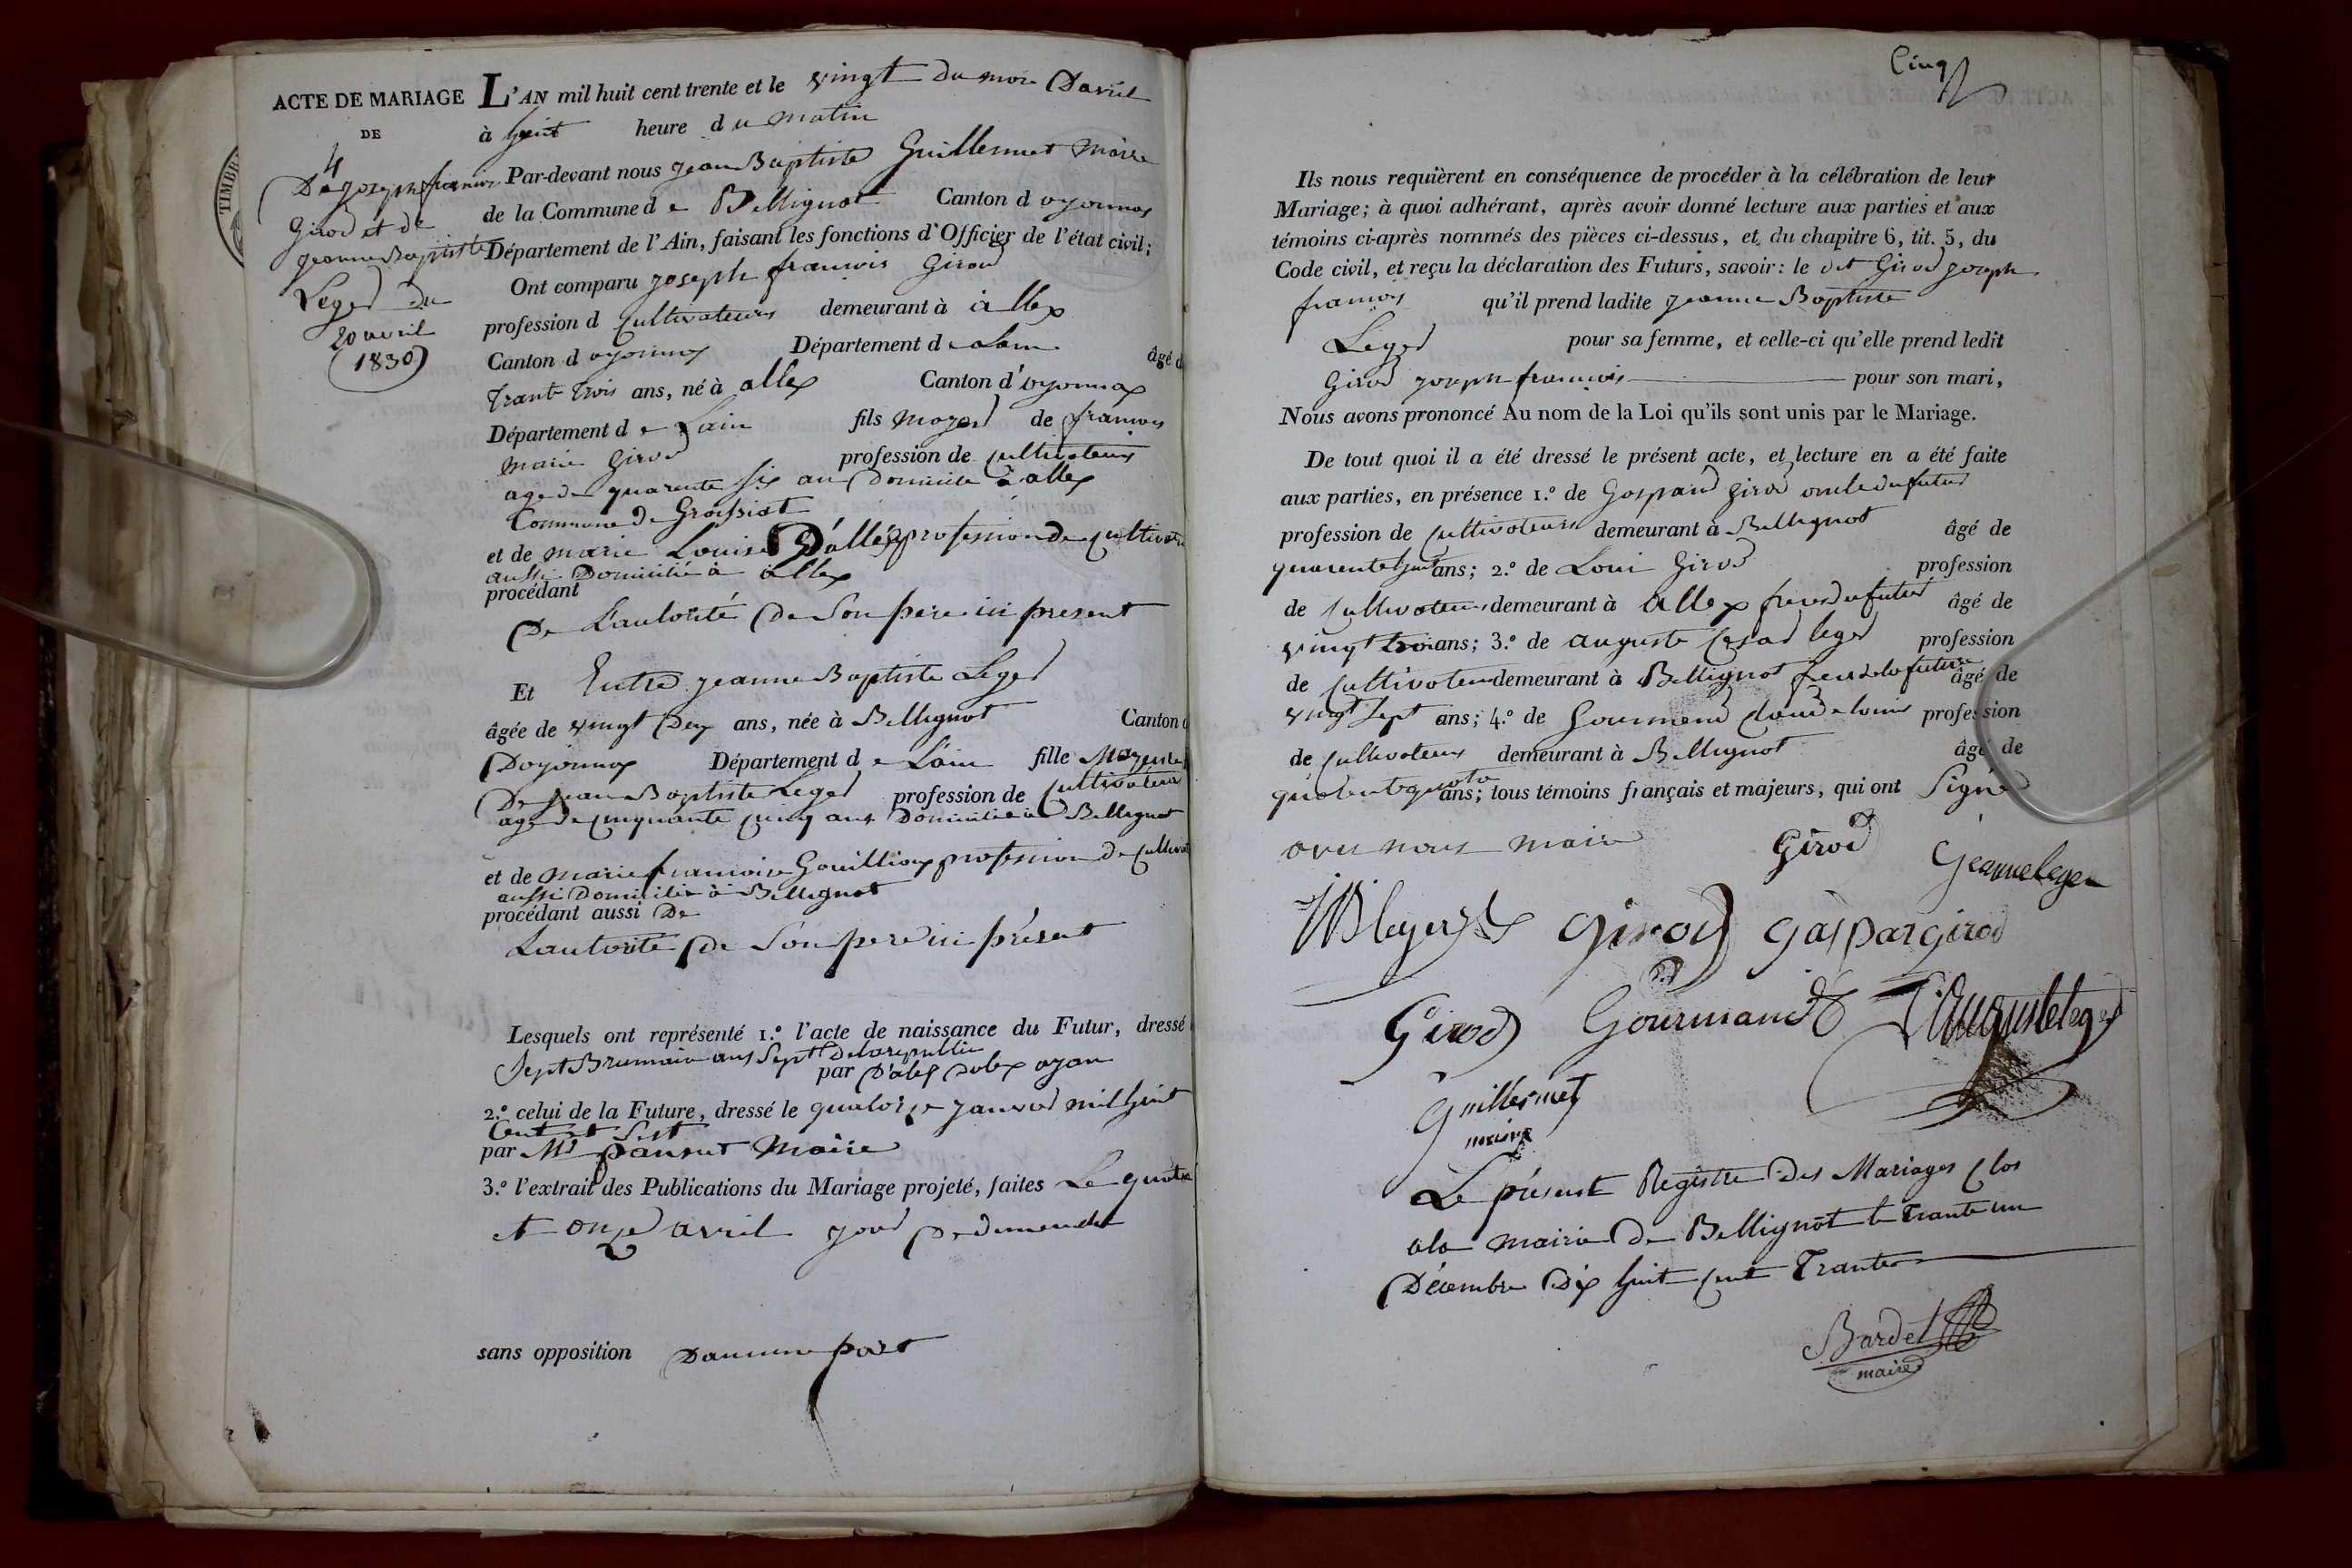 ACTE DE MARIAGE
DE
4
De joseph francois
Girod et de
jeanne Baptiste
Leger du
20 avril
1830
TIMBR
L'AN mil huit cent trente et le vingt du mois Davril
à huit heure du matin
Par-devant nous jean Baptiste Guillermet Maire
de la Commune de Bellignat Canton d oyonnax
Département de l'Ain, faisant les fonctions d'Officier de l'état civil;
Ont comparu joseph francois Girod
profession d cultivateurs demeurant à allex
Canton d oyonnax Département de Lain âgé d
trant trois ans, né à allex Canton d'oyonnax
Département de Lain fils de francois
marie Girod profession de cultivateurs
age de quarente six ans Domicile à allex
Commune de Groissiat
et de marie Louise D'allex profession de cultivat
aussi Domicilié à allex
procédant
De Lautorité De Son pere ici present
Et Entre jeanne Baptiste Leger
âgée de vingt Deux ans, née à Bellignat Canton
Doyonnax Département de Lain fille
De jean Baptiste Leger profession de Cultivateur
age de cinquante cinq ans Domicilié à Bellignat
et de marie francoise Gouilloux profession de cultivat
aussi Domicilié à Bellignat
procédant aussi De
Lautorité De Son pere ici présent
Lesquels ont représenté 1.º l'acte de naissance du Futur, dressé
Sept Brumaire ans Sept de la republic
par D'alex
2.º celui de la Future, dressé le quatorze janvier mil huit
Cent et Sept
par Mr pansut Maire
3.º l'extrait des Publications du Mariage projeté, faites Le quatre
et onze avril jour De dimenche
sans opposition Daucune part
Cinq
Ils nous requièrent en conséquence de procéder à la célébration de leur
Mariage; à quoi adhérant, après avoir donné lecture aux parties et aux
témoins ci-après nommés des pièces ci-dessus, et du chapitre 6, tit. 5, du
Code civil, et reçu la déclaration des Futurs, savoir: le dit Girod joseph
francois qu'il prend ladite jeanne Baptiste
Leger pour sa femme, et celle-ci qu'elle prend ledit
Girod joseph francois pour son mari,
Nous avons prononcé Au nom de la Loi qu'ils sont unis par le Mariage.
De tout quoi il a été dressé le présent acte, et lecture en a été faite
aux parties, en présence 1.º de Gaspard Girod oncle du futur
profession de cultivateurs demeurant à Bellignat âgé de
quarente huit ans; 2.º de Loui Girod profession
de cultivateurs demeurant à allex freres du futur âgé de
vingt trois ans; 3.º de auguste Cesar leger profession
de cultivateur demeurant à Bellignat frere de la future âgé de
vingt sept ans; 4.º de Gourmand claude louis profession
de cultivateur demeurant à Bellignat âgé de
ans; tous témoins français et majeurs, qui ont Signé
avec nous maire
Girod
Jeanneleger
JBleger
Girod
Gaspargirod
Girod
Gourmand
Augusteleger
Guillermet
maire
Le présent Registre Des Mariages clos
ala mairie De Bellignat le Trante un
Décembre Dix huit cent Trante
Bardet
maire